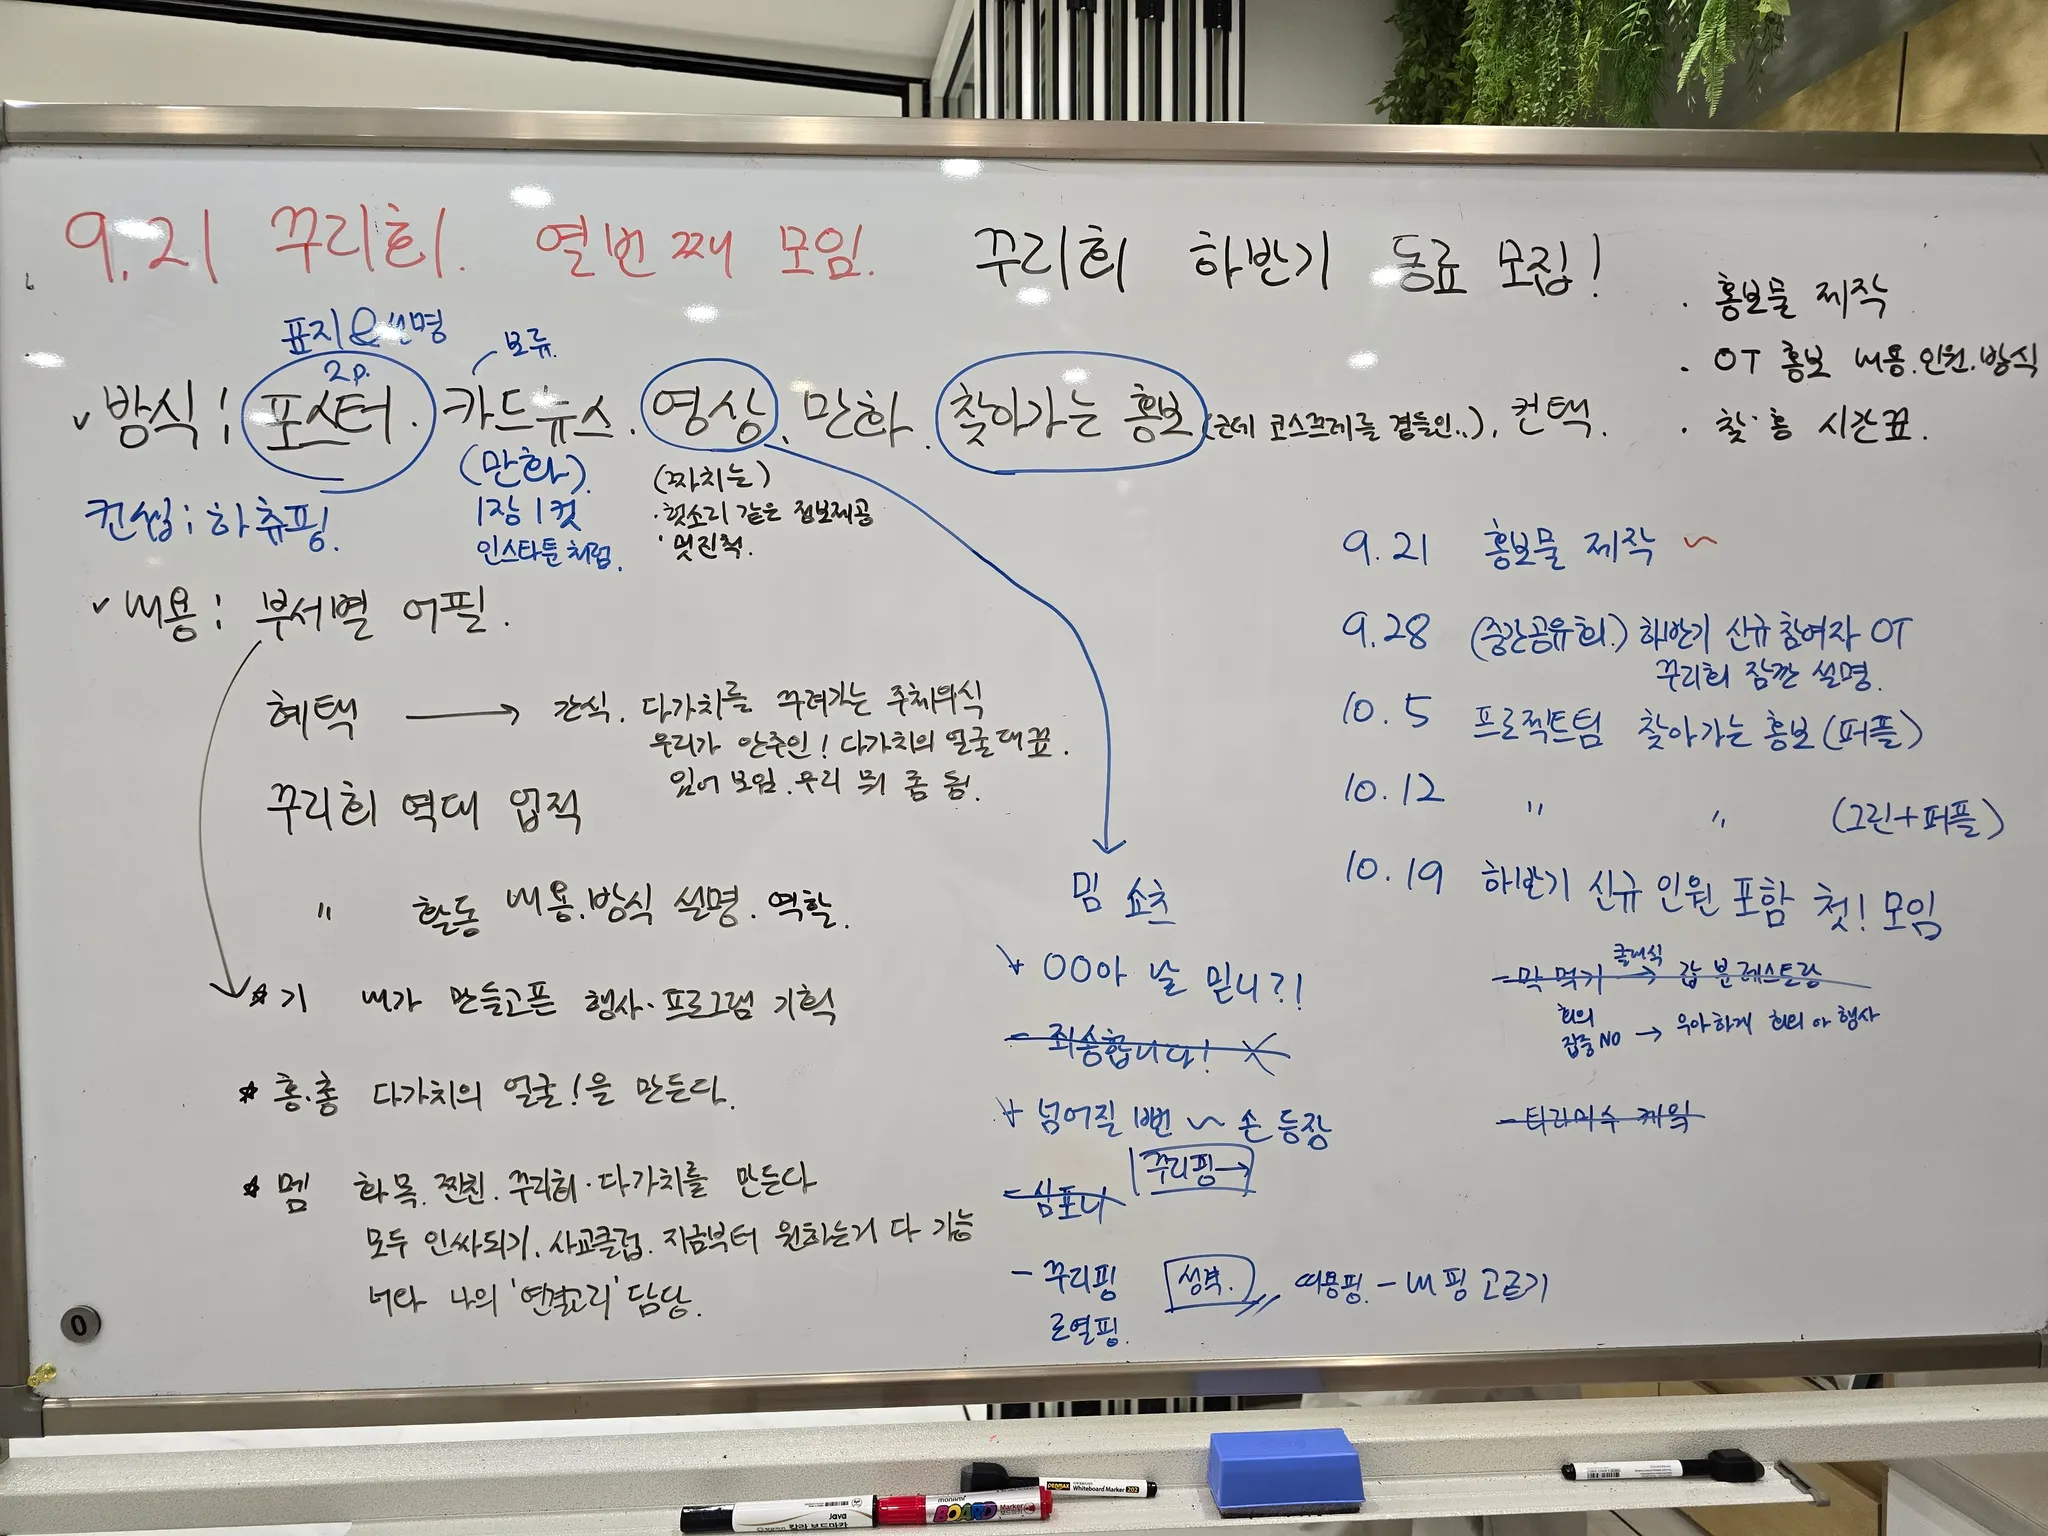 9.21 꾸리회. 열번째 모임. 꾸리회 하반기 동료 모집!
· 홍보물 제작
· OT 홍보 내용.인원.방식
· 찾·홍 시간표.
표지&설명
2p.
보류.
✓ 방식: 포스터. 카드뉴스. 영상. 만화. 찾아가는 홍보 (근데 코스프레를 곁들인..). 컨택.
(만화).
1장 1컷
인스타툰처럼.
(짜치는)
· 헛소리 같은 정보제공
· 멋진척.
컨셉: 하츄핑.
✓ 내용: 부서별 어필.
혜택 → 간식. 다가치를 꾸려가는 주체의식
우리가 안주인! 다가치의 얼굴대표.
있어 보임. 우리 뭐 좀 됨.
꾸리회 역대 업적
〃 활동 내용.방식 설명. 역할.
☆ 기 내가 만들고픈 행사·프로그램 기획
☆ 홍·총 다가치의 얼굴!을 만든다.
☆ 멤 화목. 찐친. 꾸리회·다가치를 만든다
모두 인싸되기. 사교클럽. 지금부터 원하는거 다 가능
너와 나의 '연결고리' 담당.
밈 쇼츠
OO아 날 믿니?!
- 죄송합니다! X
넘어질 뻔 ~ 손 등장
꾸리핑→
- 심포니
- 꾸리핑
로열핑.
성격. 떠용핑. - 내 핑 고르기
9.21 홍보물 제작 ~
9.28 (중간공유회.) 하반기 신규 참여자 OT
꾸리회 잠깐 설명.
10.5 프로젝트팀 찾아가는 홍보 (퍼플)
10.12 〃 〃 (그린+퍼플)
10.19 하반기 신규 인원 포함 첫! 모임
클래식
- 막 먹기 → 갑분레스토랑
회의
집중 NO → 우아하게 회의 아 행사
- 티라미수 케익
0
DENMAX Whiteboard Marker 202
monami BOARD Marker
Java
칼라 보드마카